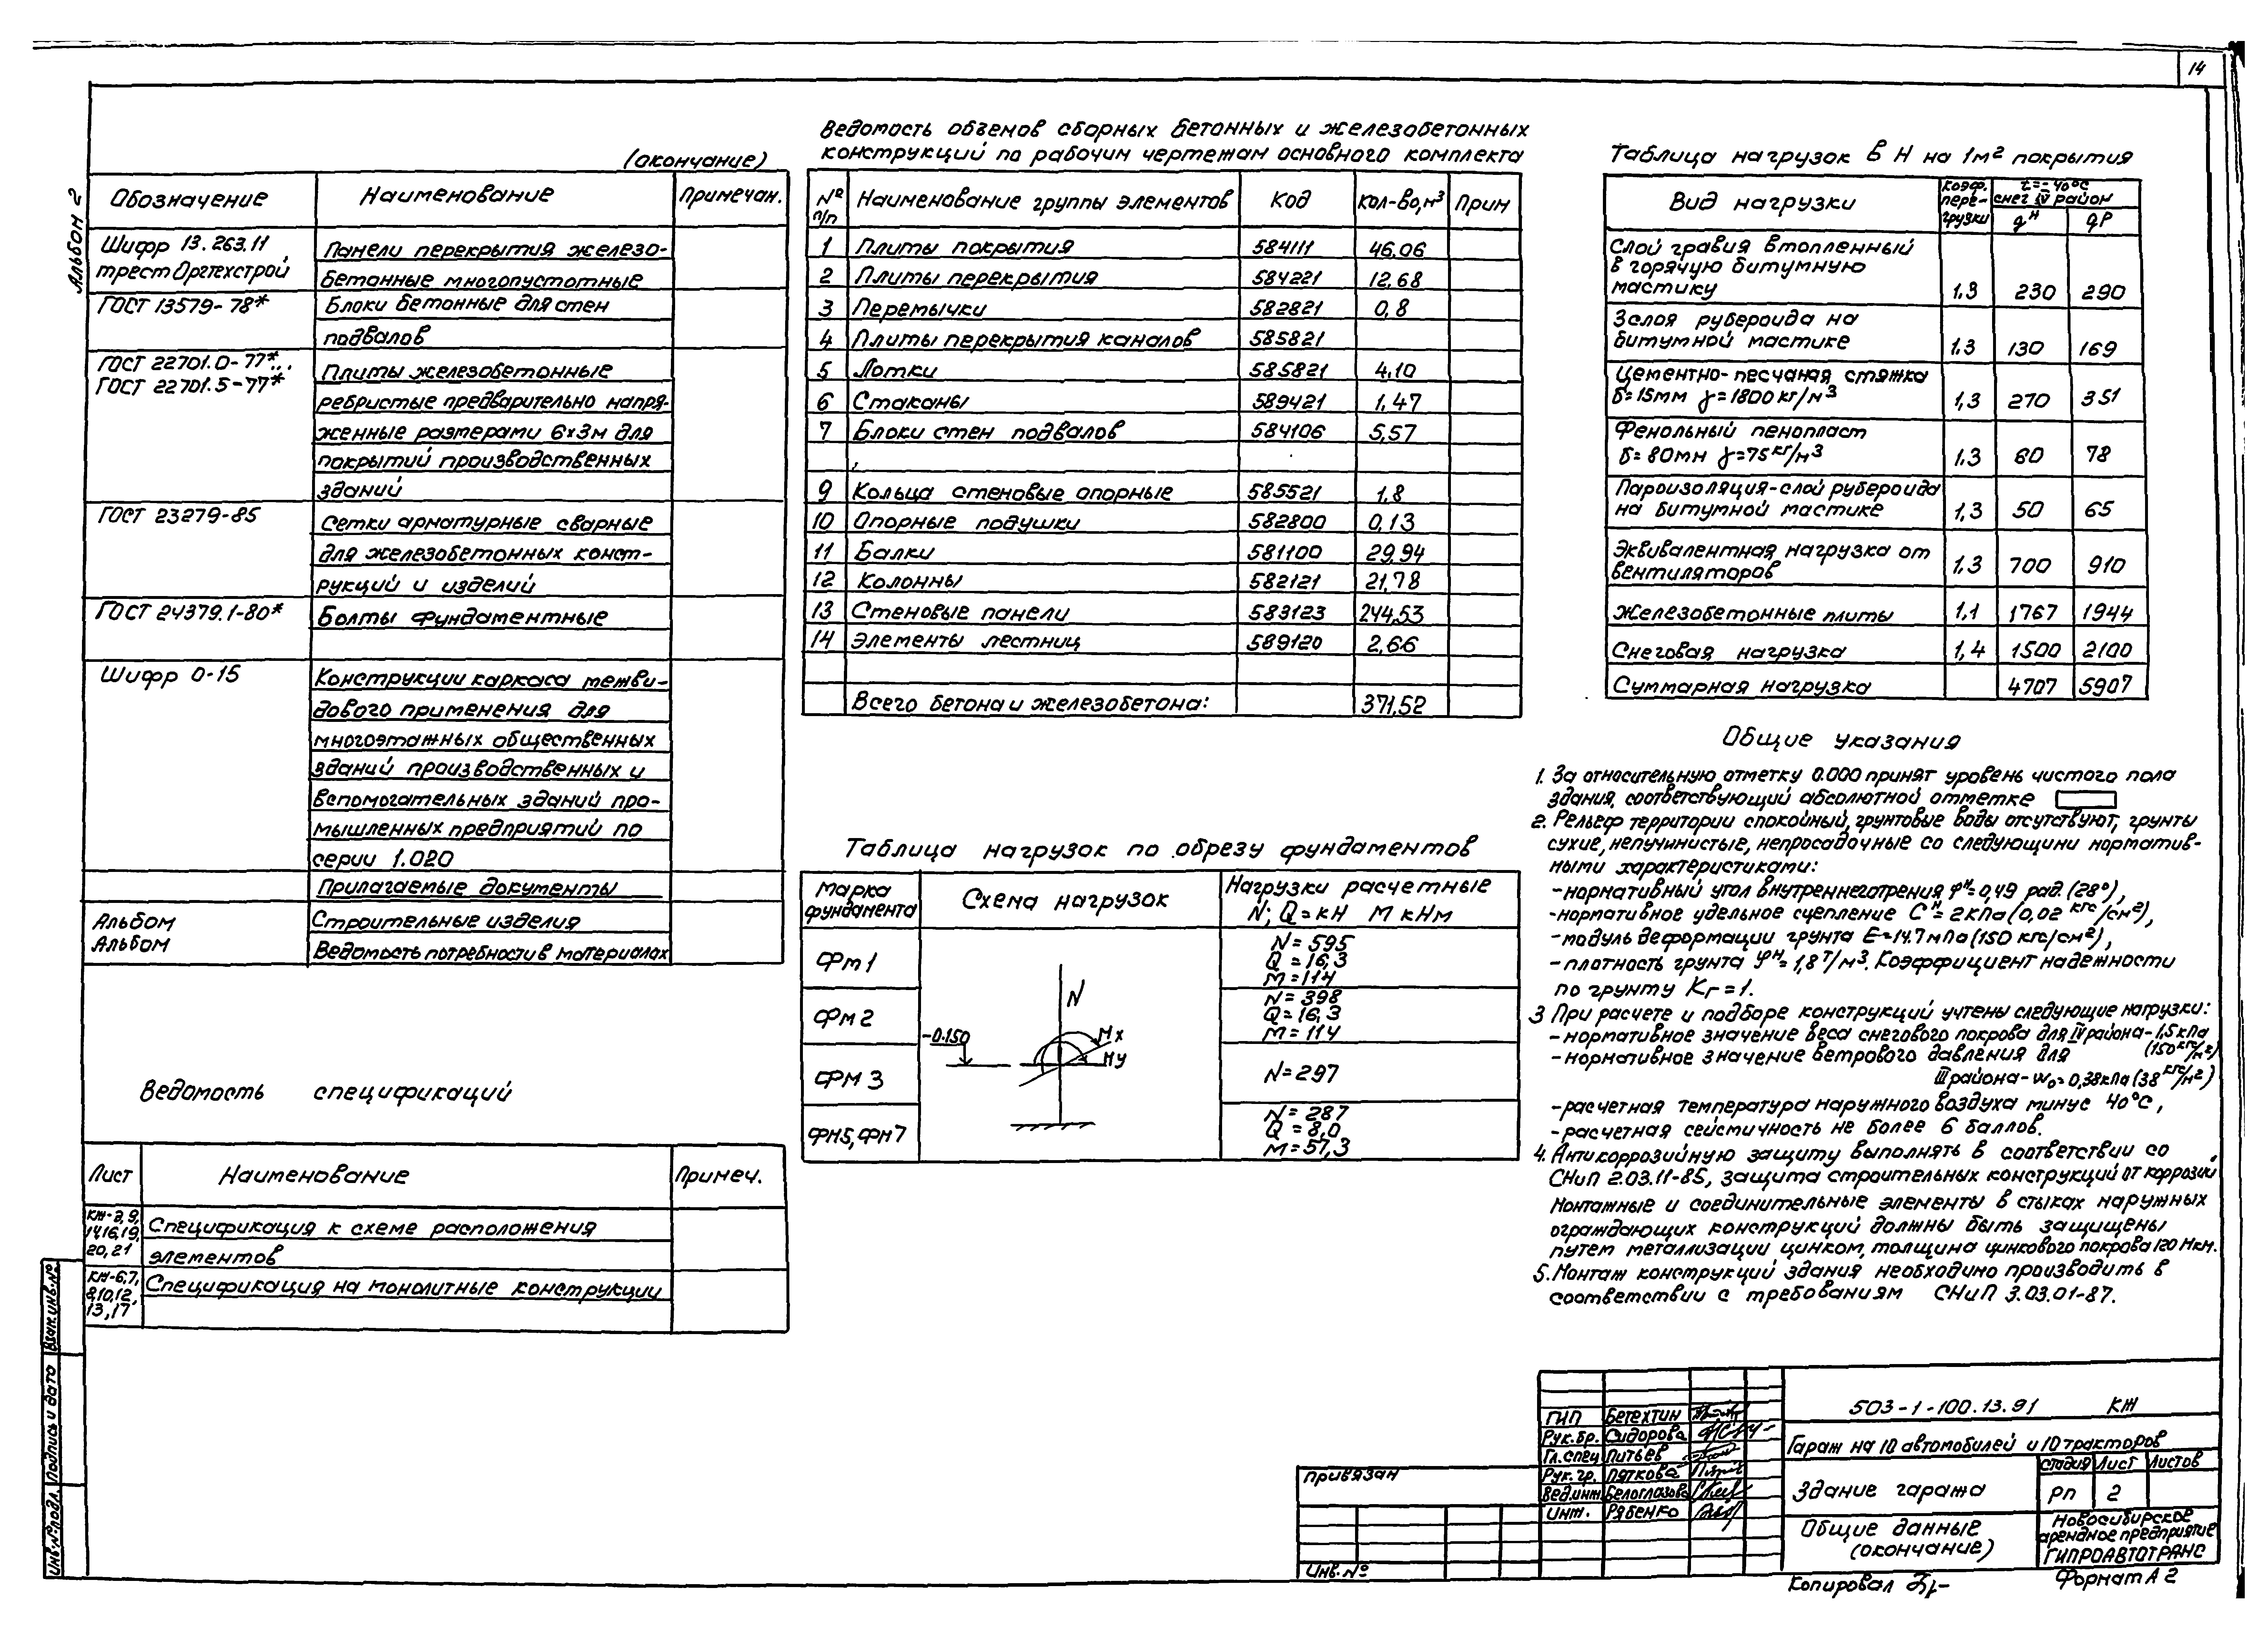 14
Альбом 2
(окончание)
Обозначение Наименование Примечан.
Шифр 13.263.11 Панели перекрытия железо-
трест Оргтехстрой бетонные многопустотные
ГОСТ 13579-78* Блоки бетонные для стен
подвалов
ГОСТ 22701.0-77*... Плиты железобетонные
ГОСТ 22701.5-77* ребристые предварительно напря-
женные размерами 6х3м для
покрытий производственных
зданий
ГОСТ 23279-85 Сетки арматурные сварные
для железобетонных конст-
рукций и изделий
ГОСТ 24379.1-80* Болты фундаментные
Шифр 0-15 Конструкции каркаса межви-
дового применения для
многоэтажных общественных
зданий производственных и
вспомогательных зданий про-
мышленных предприятий по
серии 1.020
Прилагаемые документы
Альбом Строительные изделия
Альбом Ведомость потребности в материалах
Ведомость спецификаций
Лист Наименование Примеч.
КЖ-3,9, Спецификация к схеме расположения
14,16,19, элементов
20,21
КЖ-6,7, Спецификация на монолитные конструкции
8,10,12,
13,17
Ведомость объемов сборных бетонных и железобетонных
конструкций по рабочим чертежам основного комплекта
№ п/п Наименование группы элементов Код Кол-во,м³ Прим
1 Плиты покрытия 584111 46.06
2 Плиты перекрытия 584221 12,68
3 Перемычки 582821 0,8
4 Плиты перекрытия каналов 585821
5 Лотки 585821 4,10
6 Стаканы 589421 1,47
7 Блоки стен подвалов 584106 5,57
9 Кольца стеновые опорные 585521 1,8
10 Опорные подушки 582800 0,13
11 Балки 581100 29,94
12 Колонны 582121 21,78
13 Стеновые панели 583123 244,53
14 Элементы лестниц 589120 2,66
Всего бетона и железобетона: 371,52
Таблица нагрузок по обрезу фундаментов
Марка фундамента Схема нагрузок Нагрузки расчетные
N; Q=кН М кНм
Фм1 N=595
Q=16,3
М=114
Фм2 N=398
Q=16,3
М=114
Фм3 N=297
Фм5,Фм7 N=287
Q=8,0
М=57,3
N
-0.150
Мх
Му
Таблица нагрузок в Н на 1м² покрытия
Вид нагрузки Коэф. пере- грузки t=-40°С
снег IV район
qᴴ qᴾ
Слой гравия втопленный
в горячую битумную
мастику 1,3 230 290
3слоя рубероида на
битумной мастике 1,3 130 169
Цементно-песчаная стяжка
δ=15мм γ=1800кг/м³ 1,3 270 351
Фенольный пенопласт
δ=80мм γ=75кг/м³ 1,3 60 78
Пароизоляция-слой рубероида
на битумной мастике 1,3 50 65
Эквивалентная нагрузка от
вентиляторов 1.3 700 910
Железобетонные плиты 1.1 1767 1944
Снеговая нагрузка 1,4 1500 2100
Суммарная нагрузка 4707 5907
Общие указания
1. За относительную отметку 0.000 принят уровень чистого пола
здания, соответствующий абсолютной отметке
2. Рельеф территории спокойный, грунтовые воды отсутствуют, грунты
сухие, непучинистые, непросадочные со следующими норматив-
ными характеристиками:
-нормативный угол внутреннего трения φᴴ=0,49 рад.(28°),
-нормативное удельное сцепление Сᴴ=2кПа(0,02 кгс/см²),
-модуль деформации грунта Е=14.7мПа(150 кгс/см²),
-плотность грунта φᴴ=1,8т/м³. Коэффициент надежности
по грунту Кг=1.
3 При расчете и подборе конструкций учтены следующие нагрузки:
-нормативное значение веса снегового покрова для IV района-1,5кПа
(150кгс/м²)
-нормативное значение ветрового давления для
III района-w₀=0,38кПа(38кгс/м²)
-расчетная температура наружного воздуха минус 40°С,
-расчетная сейсмичность не более 6 баллов.
4. Антикоррозийную защиту выполнять в соответствии со
СНиП 2.03.11-85, защита строительных конструкций от коррозии.
Монтажные и соединительные элементы в стыках наружных
ограждающих конструкций должны быть защищены
путем металлизации цинком, толщина цинкового покрова 120 мкм.
5. Монтаж конструкций здания необходимо производить в
соответствии с требованиям СНиП 3.03.01-87.
Взам.инв.№
Подпись и дата
Инв.№подл.
Привязан
Инв.№
ГИП Бегехтин
Рук.бр. Сидорова
Гл.спец Питьев
Рук.гр. Пяткова
Вед.инж. Белоглазова
Инж. Рябенко
503-1-100.13.91 КЖ
Гараж на 10 автомобилей и 10 тракторов
Здание гаража
Стадия Лист Листов
РП 2
Общие данные
(окончание)
Новосибирское
арендное предприятие
ГИПРОАВТОТРАНС
Копировал
Формат А2